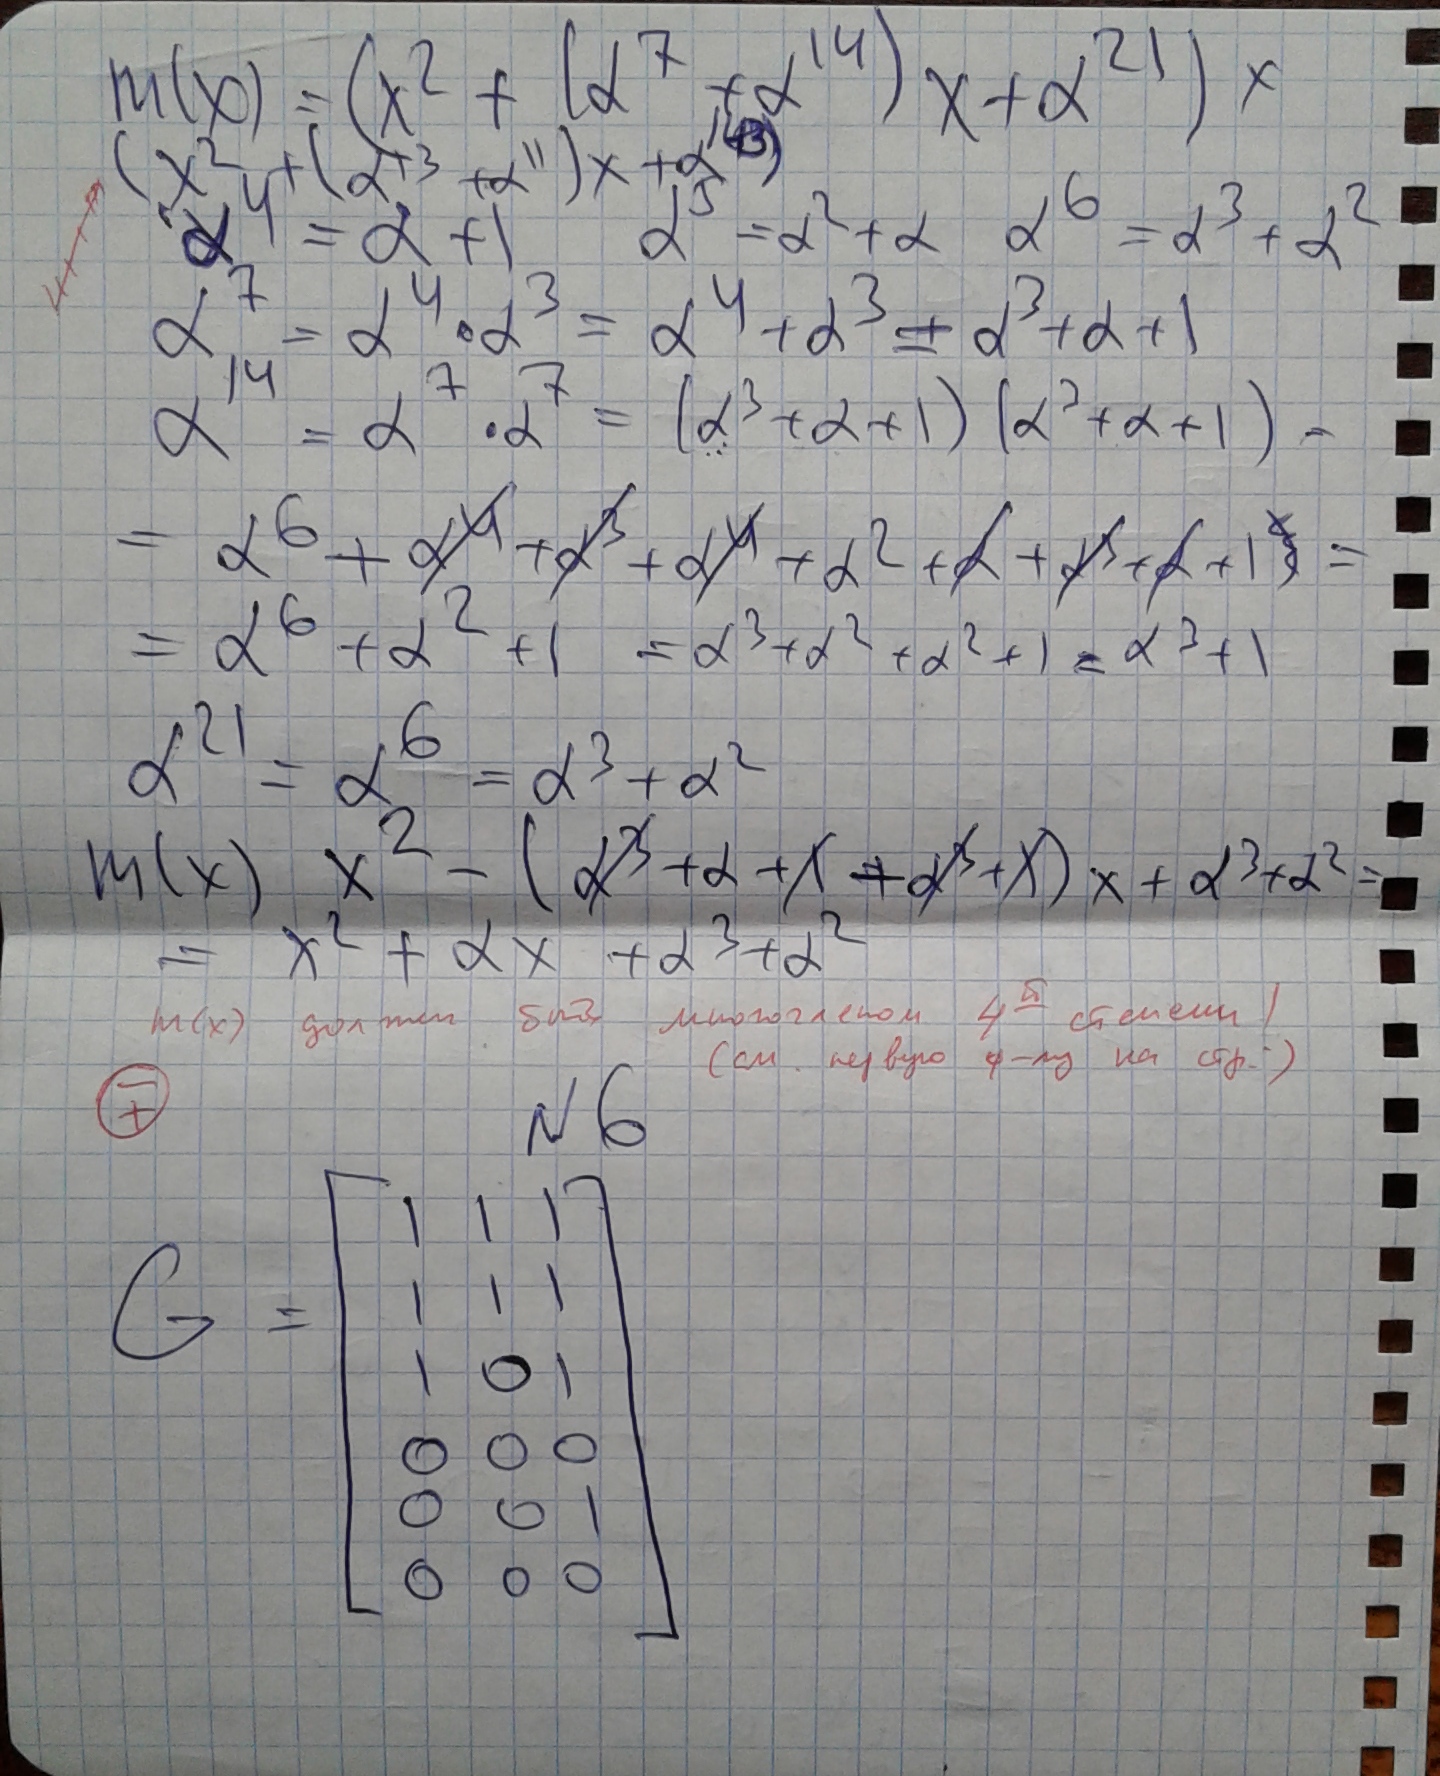 m(x) = (x² + (α⁷ + α¹⁴) x + α²¹) ×
(x² + (α¹³ + α¹¹) x + α
α⁴ = α + 1 α⁵ = α² + α α⁶ = α³ + α²
α⁷ = α⁴ · α³ = α⁴ + α³ = α³ + α + 1
α¹⁴ = α⁷ · α⁷ = (α³ + α + 1) (α³ + α + 1) =
= α⁶ + α⁴ + α³ + α⁴ + α² + α + α³ + α + 1 =
= α⁶ + α² + 1 = α³ + α² + α² + 1 = α³ + 1
α²¹ = α⁶ = α³ + α²
m(x) x² - (α³ + α + 1 + α³ + 1) x + α³ + α² =
= x² + αx + α³ + α²
m(x) должен быть многочленом 4й степени!
(см. первую ф-лу на стр.)
∓
N6
G =
1 1 1
1 1 1
1 0 1
0 0 0
0 0 1
0 0 0